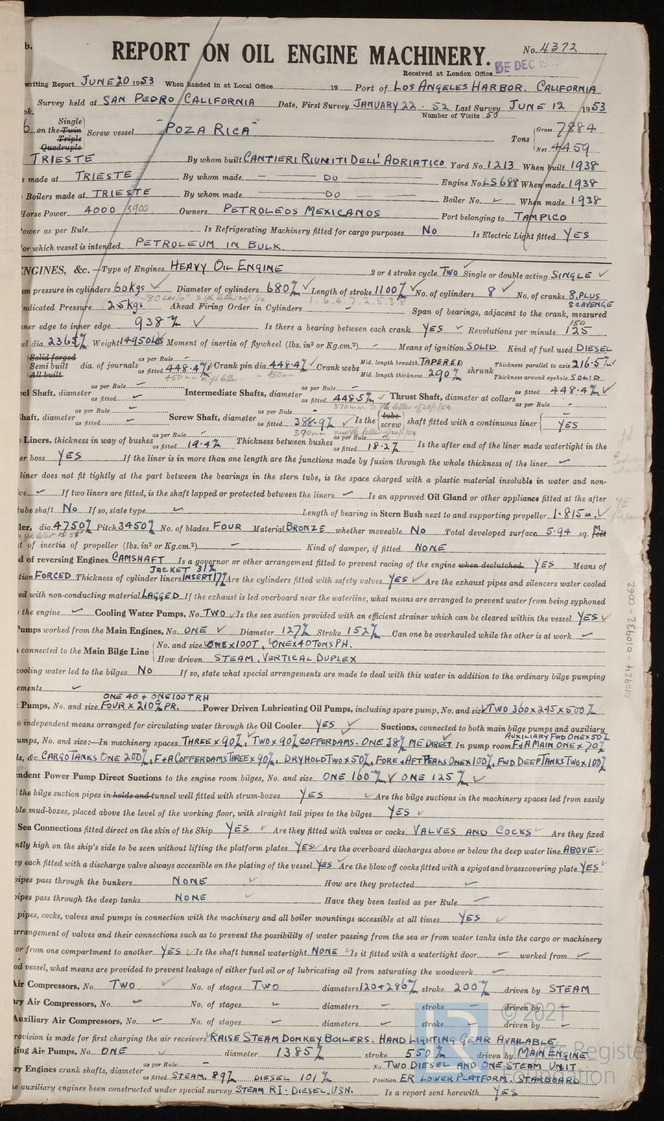 b.
REPORT ON OIL ENGINE MACHINERY. No. 4372
Received at London Office
DEC
writing Report JUNE 20 1953 When handed in at Local Office 19 Port of LOS ANGELES HARBOR. CALIFORNIA
Survey held at SAN PEDRO CALIFORNIA Date, First Survey JANUARY 22. 52 Last Survey JUNE 12 1953
Number of Visits 50
on the Single Twin Triple Quadruple Screw vessel "POZA RICA" Tons Gross 7884 Net 4459
TRIESTE By whom built CANTIERI RIUNITI DELL' ADRIATICO Yard No. 1213 When built 1938
s made at TRIESTE By whom made DO Engine No. LS688 When made 1938
Boilers made at TRIESTE By whom made DO Boiler No. When made 1938
Horse Power 4000 5900 Owners PETROLEOS MEXICANOS Port belonging to TAMPICO
Power as per Rule Is Refrigerating Machinery fitted for cargo purposes NO Is Electric Light fitted YES
for which vessel is intended PETROLEUM IN BULK.
ENGINES, &c.—Type of Engines HEAVY OIL ENGINE 2 or 4 stroke cycle TWO Single or double acting SINGLE
m pressure in cylinders 60 kgs Diameter of cylinders 680 Length of stroke 1100 No. of cylinders 8 No. of cranks 8 PLUS SCAVENGE
ndicated Pressure Ahead Firing Order in Cylinders 1.6.4.7.2.5.3.8 Span of bearings, adjacent to the crank, measured
nner edge to inner edge 938 Is there a bearing between each crank YES Revolutions per minute 150 125
el dia. 2363 Weight 14950 Moment of inertia of flywheel (lbs. in² or Kg.cm²) Means of ignition SOLID Kind of fuel used DIESEL
Solid forged Semi built All built dia. of journals as per Rule as fitted 448.4 Crank pin dia. 448.4 Crank webs Mid. length breadth TAPERED Mid. length thickness 290 shrunk Thickness parallel to axis 216.5 Thickness around eyehole SOLID
eel Shaft, diameter as per Rule as fitted Intermediate Shafts, diameter as per Rule as fitted 448.5 Thrust Shaft, diameter at collars as fitted 448.4
haft, diameter as per Rule as fitted Screw Shaft, diameter as per Rule as fitted 388.9 Is the tube screw shaft fitted with a continuous liner YES
Liners, thickness in way of bushes as per Rule as fitted 19.4 Thickness between bushes as per Rule as fitted 18.2 Is the after end of the liner made watertight in the
er boss YES If the liner is in more than one length are the junctions made by fusion through the whole thickness of the liner
liner does not fit tightly at the part between the bearings in the stern tube, is the space charged with a plastic material insoluble in water and non-
ve If two liners are fitted, is the shaft lapped or protected between the liners Is an approved Oil Gland or other appliance fitted at the after
tube shaft NO If so, state type Length of bearing in Stern Bush next to and supporting propeller 1.815
ler, dia. 4750 Pitch 3450 No. of blades FOUR Material BRONZE whether moveable NO Total developed surface 5.94 sq. feet
t of inertia of propeller (lbs. in² or Kg.cm²) Kind of damper, if fitted NONE
d of reversing Engines CAMSHAFT Is a governor or other arrangement fitted to prevent racing of the engine when declutched YES Means of
tion FORCED Thickness of cylinder liners JACKET 31 INSERT 17 Are the cylinders fitted with safety valves YES Are the exhaust pipes and silencers water cooled
ed with non-conducting material LAGGED If the exhaust is led overboard near the waterline, what means are arranged to prevent water from being syphoned
o the engine Cooling Water Pumps, No. TWO Is the sea suction provided with an efficient strainer which can be cleared within the vessel YES
Pumps worked from the Main Engines, No. ONE Diameter 127 Stroke 152 Can one be overhauled while the other is at work
s connected to the Main Bilge Line No. and size ONE X 100T, ONE X 40 TONS P.H.
How driven STEAM, VERTICAL DUPLEX
cooling water led to the bilges NO If so, state what special arrangements are made to deal with this water in addition to the ordinary bilge pumping
ements
Pumps, No. and size ONE 40 + ONE 100 TRH FOUR X 210 PR. Power Driven Lubricating Oil Pumps, including spare pump, No. and size TWO 360 X 245 X 500
o independent means arranged for circulating water through the Oil Cooler YES Suctions, connected to both main bilge pumps and auxiliary
AUXILIARY FWD ONE X 50
umps, No. and size:—In machinery spaces THREE X 90, TWO X 90 COFFERDAMS. ONE 38 ME DIRECT. In pump room F+A MAIN ONE X 70
ds, &c. CARGO TANKS ONE 200, F+A COFFERDAMS THREE X 90, DRY HOLD TWO X 50, FORE + AFT PEAKS ONE X 100, FWD DEEP TANKS TWO X 100
ndent Power Pump Direct Suctions to the engine room bilges, No. and size ONE 160 ONE 125
the bilge suction pipes in holds and tunnel well fitted with strum-boxes YES Are the bilge suctions in the machinery spaces led from easily
ble mud-boxes, placed above the level of the working floor, with straight tail pipes to the bilges YES
Sea Connections fitted direct on the skin of the Ship YES Are they fitted with valves or cocks VALVES AND COCKS Are they fixed
ntly high on the ship's side to be seen without lifting the platform plates YES Are the overboard discharges above or below the deep water line ABOVE
ey each fitted with a discharge valve always accessible on the plating of the vessel YES Are the blow off cocks fitted with a spigot and brass covering plate YES
pipes pass through the bunkers NONE How are they protected
pipes pass through the deep tanks NONE Have they been tested as per Rule
pipes, cocks, valves and pumps in connection with the machinery and all boiler mountings accessible at all times YES
arrangement of valves and their connections such as to prevent the possibility of water passing from the sea or from water tanks into the cargo or machinery
or from one compartment to another YES Is the shaft tunnel watertight NONE Is it fitted with a watertight door worked from
od vessel, what means are provided to prevent leakage of either fuel oil or of lubricating oil from saturating the woodwork
Air Compressors, No. TWO No. of stages TWO diameters 120+286 stroke 200 driven by STEAM
ry Air Compressors, No. No. of stages diameters stroke driven by
Auxiliary Air Compressors, No. No. of stages diameters stroke driven by
rovision is made for first charging the air receivers RAISE STEAM DONKEY BOILERS. HAND LIGHTING GEAR AVAILABLE
ting Air Pumps, No. ONE diameter 1385 stroke 550 driven by MAIN ENGINE
ry Engines crank shafts, diameter as per Rule as fitted STEAM. 89 DIESEL 101 No. TWO DIESEL AND ONE STEAM UNIT Position ER LOWER PLATFORM STARBOARD
e auxiliary engines been constructed under special survey STEAM RI: DIESEL. USN. Is a report sent herewith YES
© 2021
Register
Foundation
010924-010932-0062